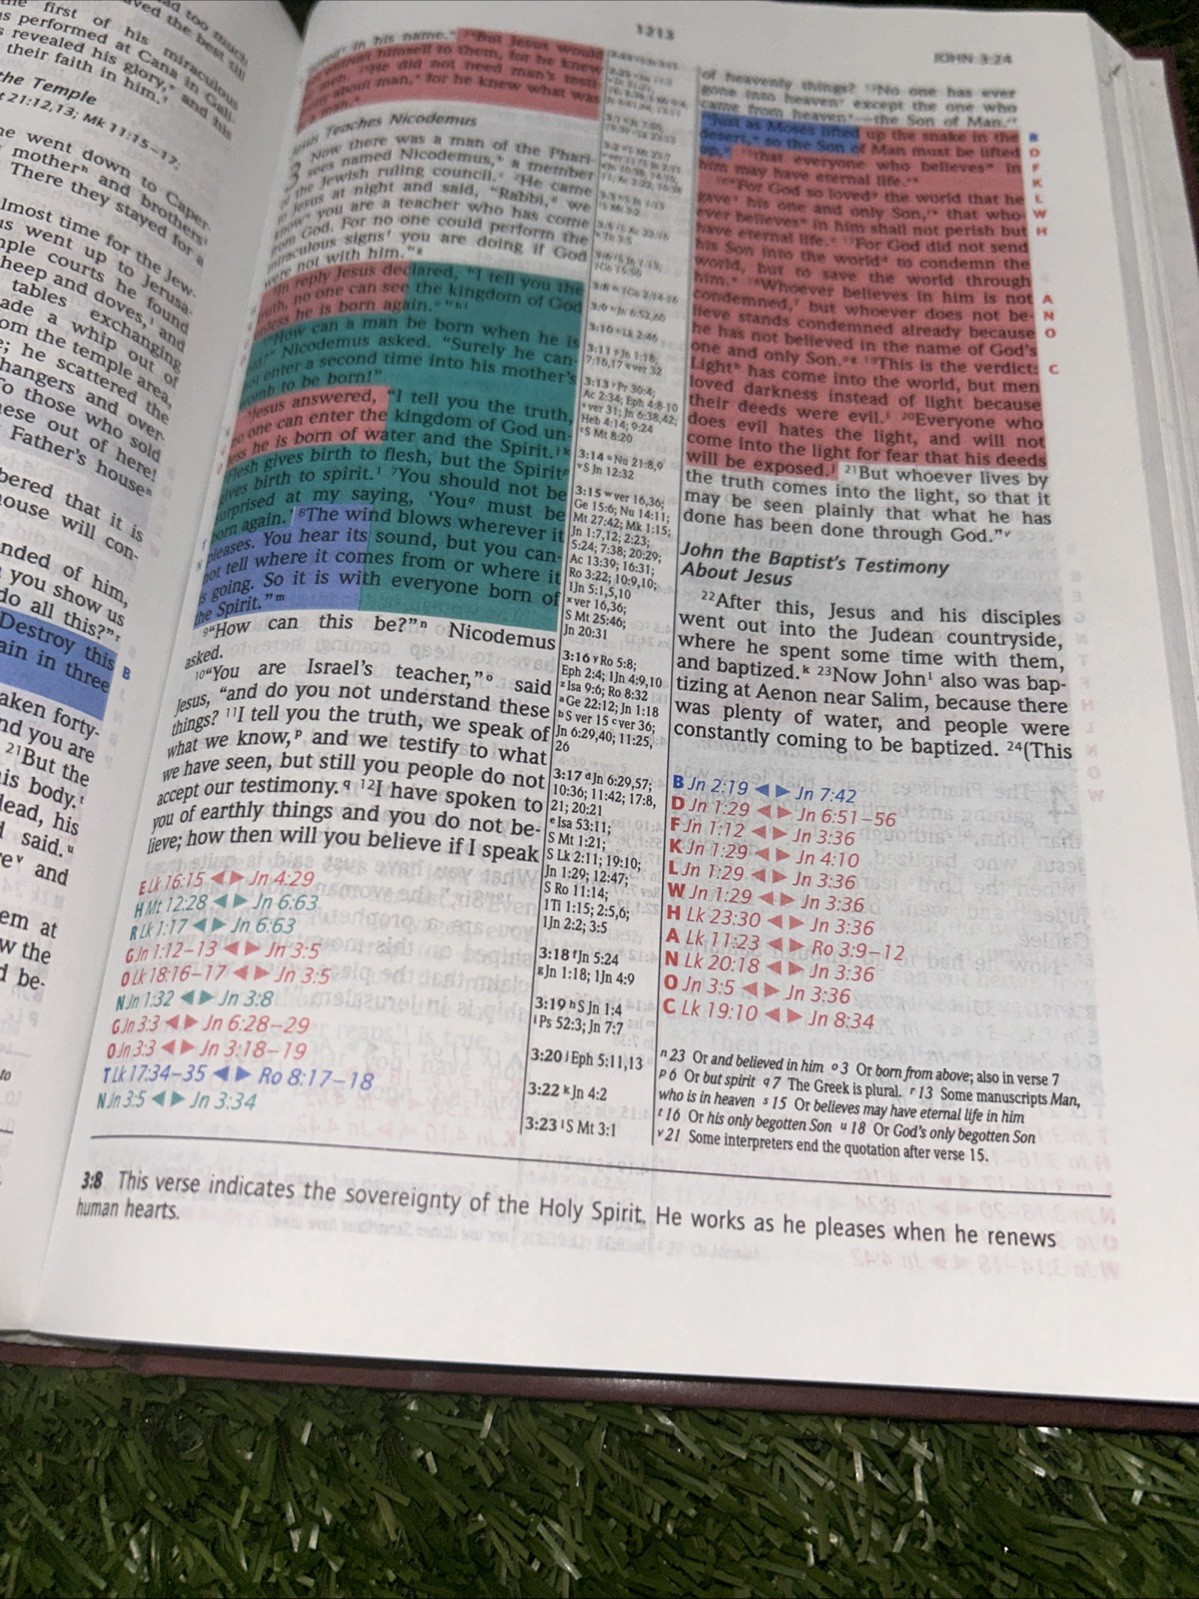 the first of his miraculous
performed at Cana in Gali-
revealed his glory, and his
their faith in him.
the Temple
21:12,13; Mk 11:15–17;
he went down to Caper-
mother and brothers
There they stayed for a
almost time for the Jew-
us went up to Jerusa-
temple courts he found
heep and doves, and
tables exchanging
ade a whip out of
om the temple area,
e; he scattered the
hangers and over-
To those who sold
hese out of here!
Father's house
bered that it is
house will con-
nded of him,
you show us
do all this?"
Destroy this
ain in three
B
aken forty-
nd you are
21But the
is body.
lead, his
said.u
ev and
em at
w the
d be-
to
1213
JOHN 3:24
in his name. But Jesus would
not entrust himself to them, for he knew
men. He did not need man's testi-
mony about man, for he knew what was
Jesus Teaches Nicodemus
3 Now there was a man of the Phari-
sees named Nicodemus, a member
of the Jewish ruling council. 2He came
to Jesus at night and said, "Rabbi, we
know you are a teacher who has come
from God. For no one could perform the
miraculous signs you are doing if God
were not with him."g
In reply Jesus declared, "I tell you the
truth, no one can see the kingdom of God
unless he is born again."
"How can a man be born when he is
old?" Nicodemus asked. "Surely he can-
not enter a second time into his mother's
womb to be born!"
Jesus answered, "I tell you the truth,
no one can enter the kingdom of God un-
less he is born of water and the Spirit.
Flesh gives birth to flesh, but the Spirit
gives birth to spirit. 7You should not be
surprised at my saying, 'You must be
born again.' 8The wind blows wherever it
pleases. You hear its sound, but you can-
not tell where it comes from or where it
is going. So it is with everyone born of
the Spirit."m
9"How can this be?"n Nicodemus
asked.
10"You are Israel's teacher,"o said
Jesus, "and do you not understand these
things? 11I tell you the truth, we speak of
what we know,p and we testify to what
we have seen, but still you people do not
accept our testimony.q 12I have spoken to
you of earthly things and you do not be-
lieve; how then will you believe if I speak
E Lk 16:15 ◄ ► Jn 4:29
H Mt 12:28 ◄ ► Jn 6:63
R Lk 1:17 ◄ ► Jn 6:63
G Jn 1:12–13 ◄ ► Jn 3:5
O Lk 18:16–17 ◄ ► Jn 3:5
N Jn 1:32 ◄ ► Jn 3:8
G Jn 3:3 ◄ ► Jn 6:28–29
O Jn 3:3 ◄ ► Jn 3:18–19
T Lk 17:34–35 ◄ ► Ro 8:17–18
N Jn 3:5 ◄ ► Jn 3:34
3:10 Lk 2:46
3:11 Jn 1:18;
7:16,17 ver 32
3:13 Pr 30:4;
Ac 2:34; Eph 4:8-10
ver 31; Jn 6:38,42;
Heb 4:14; 9:24
S Mt 8:20
3:14 Nu 21:8,9
S Jn 12:32
3:15 w ver 16,36;
Ge 15:6; Nu 14:11;
Mt 27:42; Mk 1:15;
Jn 1:7,12; 2:23;
5:24; 7:38; 20:29;
Ac 13:39; 16:31;
Ro 3:22; 10:9,10;
1Jn 5:1,5,10
x ver 16,36;
S Mt 25:46;
Jn 20:31
3:16 y Ro 5:8;
Eph 2:4; 1Jn 4:9,10
z Isa 9:6; Ro 8:32
a Ge 22:12; Jn 1:18
b S ver 15 c ver 36;
Jn 6:29,40; 11:25,
26
3:17 d Jn 6:29,57;
10:36; 11:42; 17:8,
21; 20:21
e Isa 53:11;
S Mt 1:21;
S Lk 2:11; 19:10;
Jn 1:29; 12:47;
S Ro 11:14;
1Ti 1:15; 2:5,6;
1Jn 2:2; 3:5
3:18 f Jn 5:24
g Jn 1:18; 1Jn 4:9
3:19 h S Jn 1:4
i Ps 52:3; Jn 7:7
3:20 j Eph 5:11,13
3:22 k Jn 4:2
3:23 l S Mt 3:1
of heavenly things? 13No one has ever
gone into heaven except the one who
came from heaven—the Son of Man.
Just as Moses lifted up the snake in the
desert, so the Son of Man must be lifted
up, that everyone who believes in
him may have eternal life.
"For God so loved the world that he
gave his one and only Son, that who-
ever believes in him shall not perish but
have eternal life. 17For God did not send
his Son into the world to condemn the
world, but to save the world through
him. 18Whoever believes in him is not
condemned, but whoever does not be-
lieve stands condemned already because
he has not believed in the name of God's
one and only Son. 19This is the verdict:
Light has come into the world, but men
loved darkness instead of light because
their deeds were evil. 20Everyone who
does evil hates the light, and will not
come into the light for fear that his deeds
will be exposed.j 21But whoever lives by
the truth comes into the light, so that it
may be seen plainly that what he has
done has been done through God."v
B
D
F
K
L
W
H
A
N
O
C
John the Baptist's Testimony
About Jesus
22After this, Jesus and his disciples
went out into the Judean countryside,
where he spent some time with them,
and baptized.k 23Now Johnl also was bap-
tizing at Aenon near Salim, because there
was plenty of water, and people were
constantly coming to be baptized. 24(This
B Jn 2:19 ◄ ► Jn 7:42
D Jn 1:29 ◄ ► Jn 6:51–56
F Jn 1:12 ◄ ► Jn 3:36
K Jn 1:29 ◄ ► Jn 4:10
L Jn 1:29 ◄ ► Jn 3:36
W Jn 1:29 ◄ ► Jn 3:36
H Lk 23:30 ◄ ► Jn 3:36
A Lk 11:23 ◄ ► Ro 3:9–12
N Lk 20:18 ◄ ► Jn 3:36
O Jn 3:5 ◄ ► Jn 3:36
C Lk 19:10 ◄ ► Jn 8:34
n 23 Or and believed in him o 3 Or born from above; also in verse 7
p 6 Or but spirit q 7 The Greek is plural. r 13 Some manuscripts Man,
who is in heaven s 15 Or believes may have eternal life in him
t 16 Or his only begotten Son u 18 Or God's only begotten Son
v 21 Some interpreters end the quotation after verse 15.
3:8 This verse indicates the sovereignty of the Holy Spirit. He works as he pleases when he renews
human hearts.